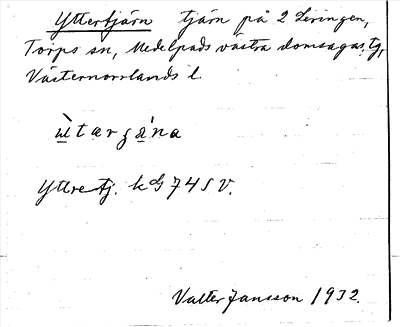 Yttertjärn tjärn på 2 Leringen,
Torps sn, Medelpads västra domsagas tg,
Västernorrlands l.
Yttretj. kbl 74 S V.
Valter Jansson 1932.